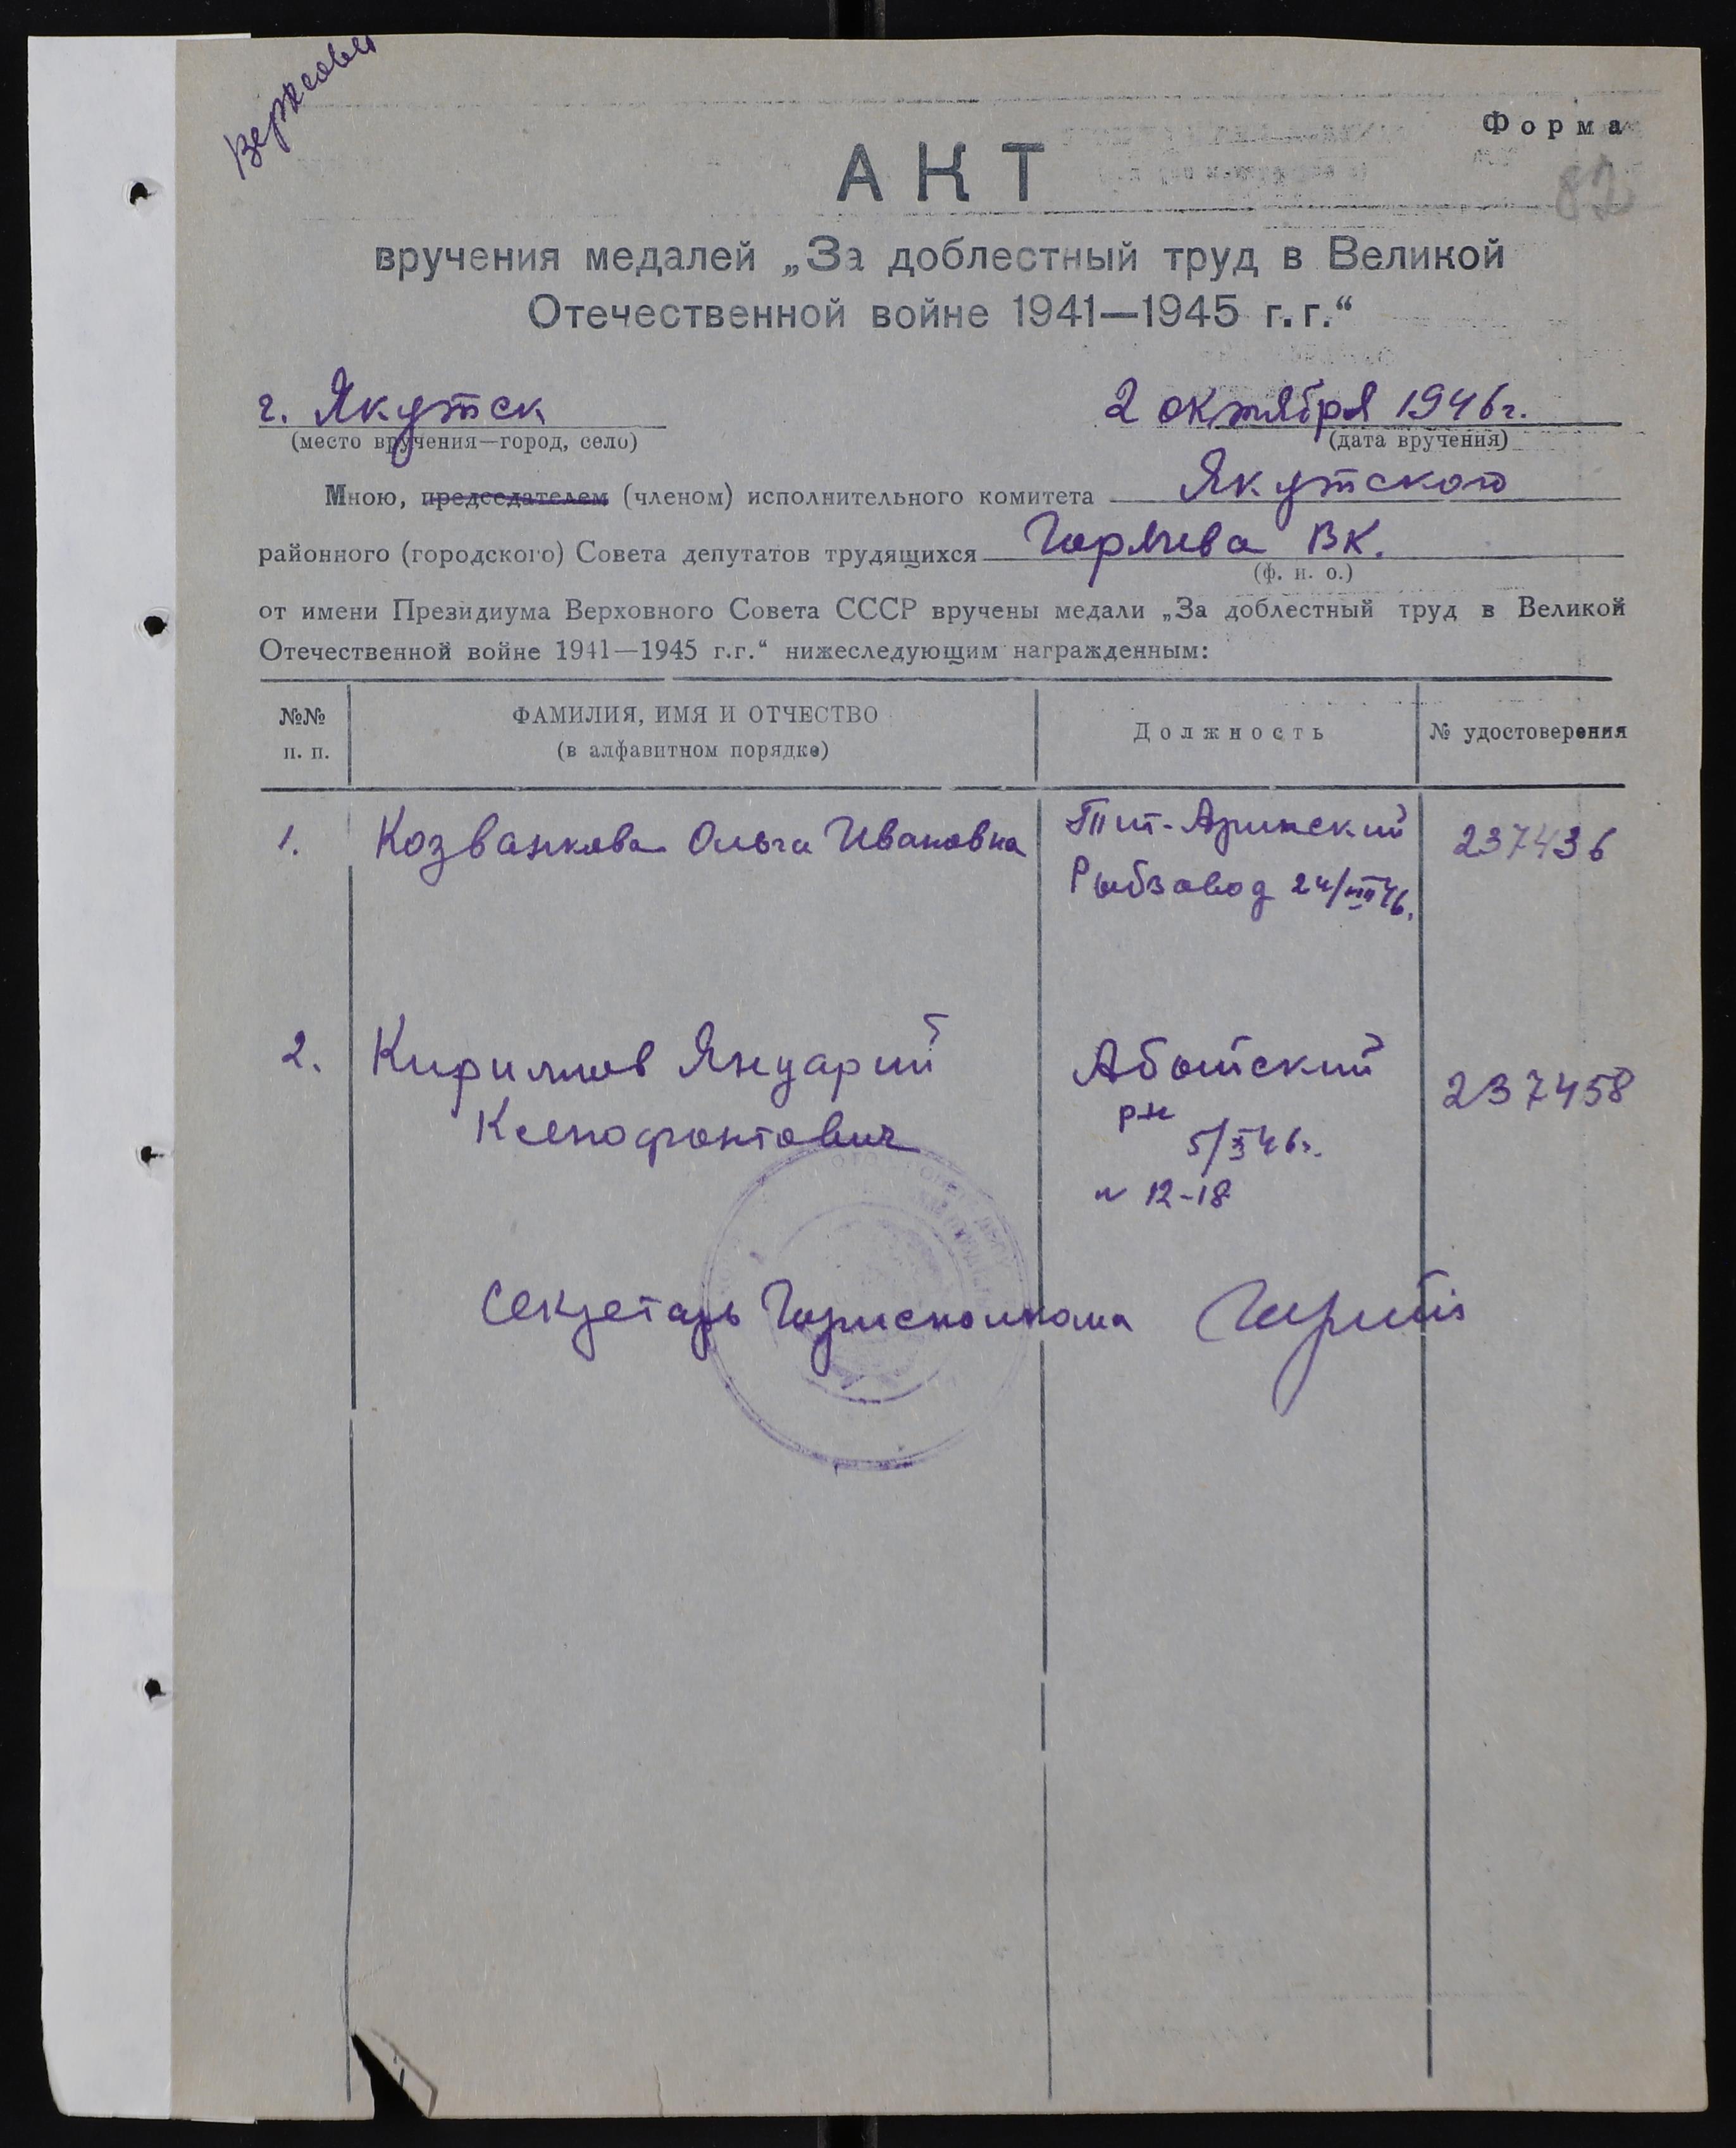 Верхсовет
Форма
82
АКТ
вручения медалей „За доблестный труд в Великой
Отечественной войне 1941—1945 г.г.“
г. Якутск
2 октября 1946 г.
(место вручения—город, село)
(дата вручения)
Мною, председателем (членом) исполнительного комитета Якутского
районного (городского) Совета депутатов трудящихся Горячева В К.
(ф. и. о.)
от имени Президиума Верховного Совета СССР вручены медали „За доблестный труд в Великой
Отечественной войне 1941—1945 г.г.“ нижеследующим награжденным:
№№ п. п.
ФАМИЛИЯ, ИМЯ И ОТЧЕСТВО
(в алфавитном порядке)
Должность
№ удостоверения
1. Козванкова Ольга Ивановна Тит-Аринский 237436
Рыбзавод 24/VIII 46.
2. Кириллов Януарий Абыйский 237458
Ксенофонтович р-н
5/X 46г.
№ 12-18
Секретарь Горисполкома